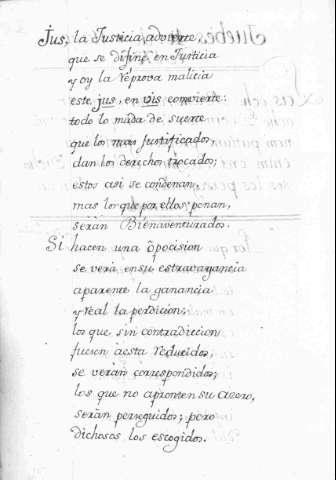 Jus, la Justicia advierte
que se difine en Justicia
y oy la réprova malicia
este jus, en vis convierte:
todo lo muda de suerte
que los mas Justificados,
dan los derechos trocados;
estos asi se condenan,
mas los que por ellos penan,
serán Bienaventurados.
Si hacen una oposicion
se verá en su estravagancia
aparente la ganancia
y real la perdicion;
los que sin contradiccion
fueren a esta reducidos,
se verán correspondidos;
los que no apronten su acero,
serán perseguidos; pero
dichosos los escogidos.